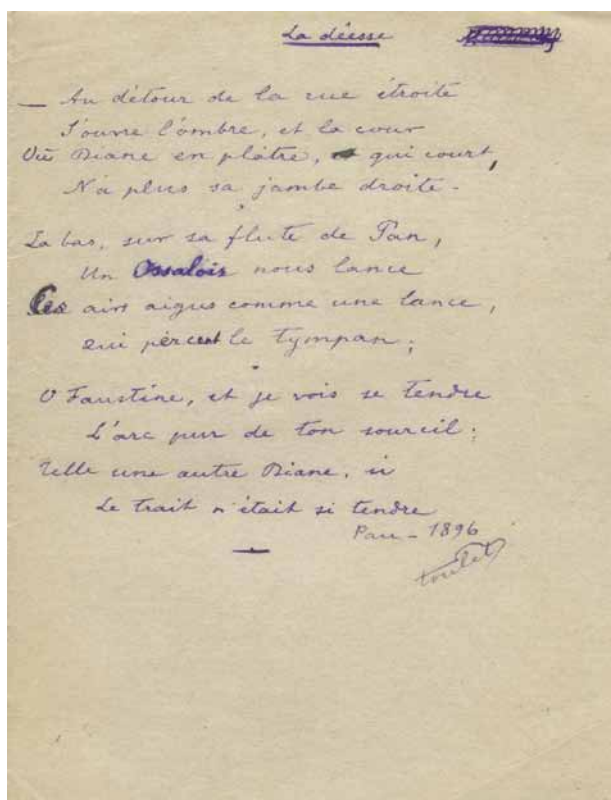 La déesse
— Au détour de la rue étroite
S'ouvre l'ombre, et la cour
Où Diane en plâtre, qui court,
N'a plus sa jambe droite.
La bas, sur sa flute de Pan,
Un Ossalois nous lance
Ces airs aigus comme une lance,
Qui percent le tympan;
O Faustine, et je vois se tendre
L'arc pur de ton sourcil;
Telle une autre Diane, si
Le trait n'était si tendre
Pau - 1896
Toulet